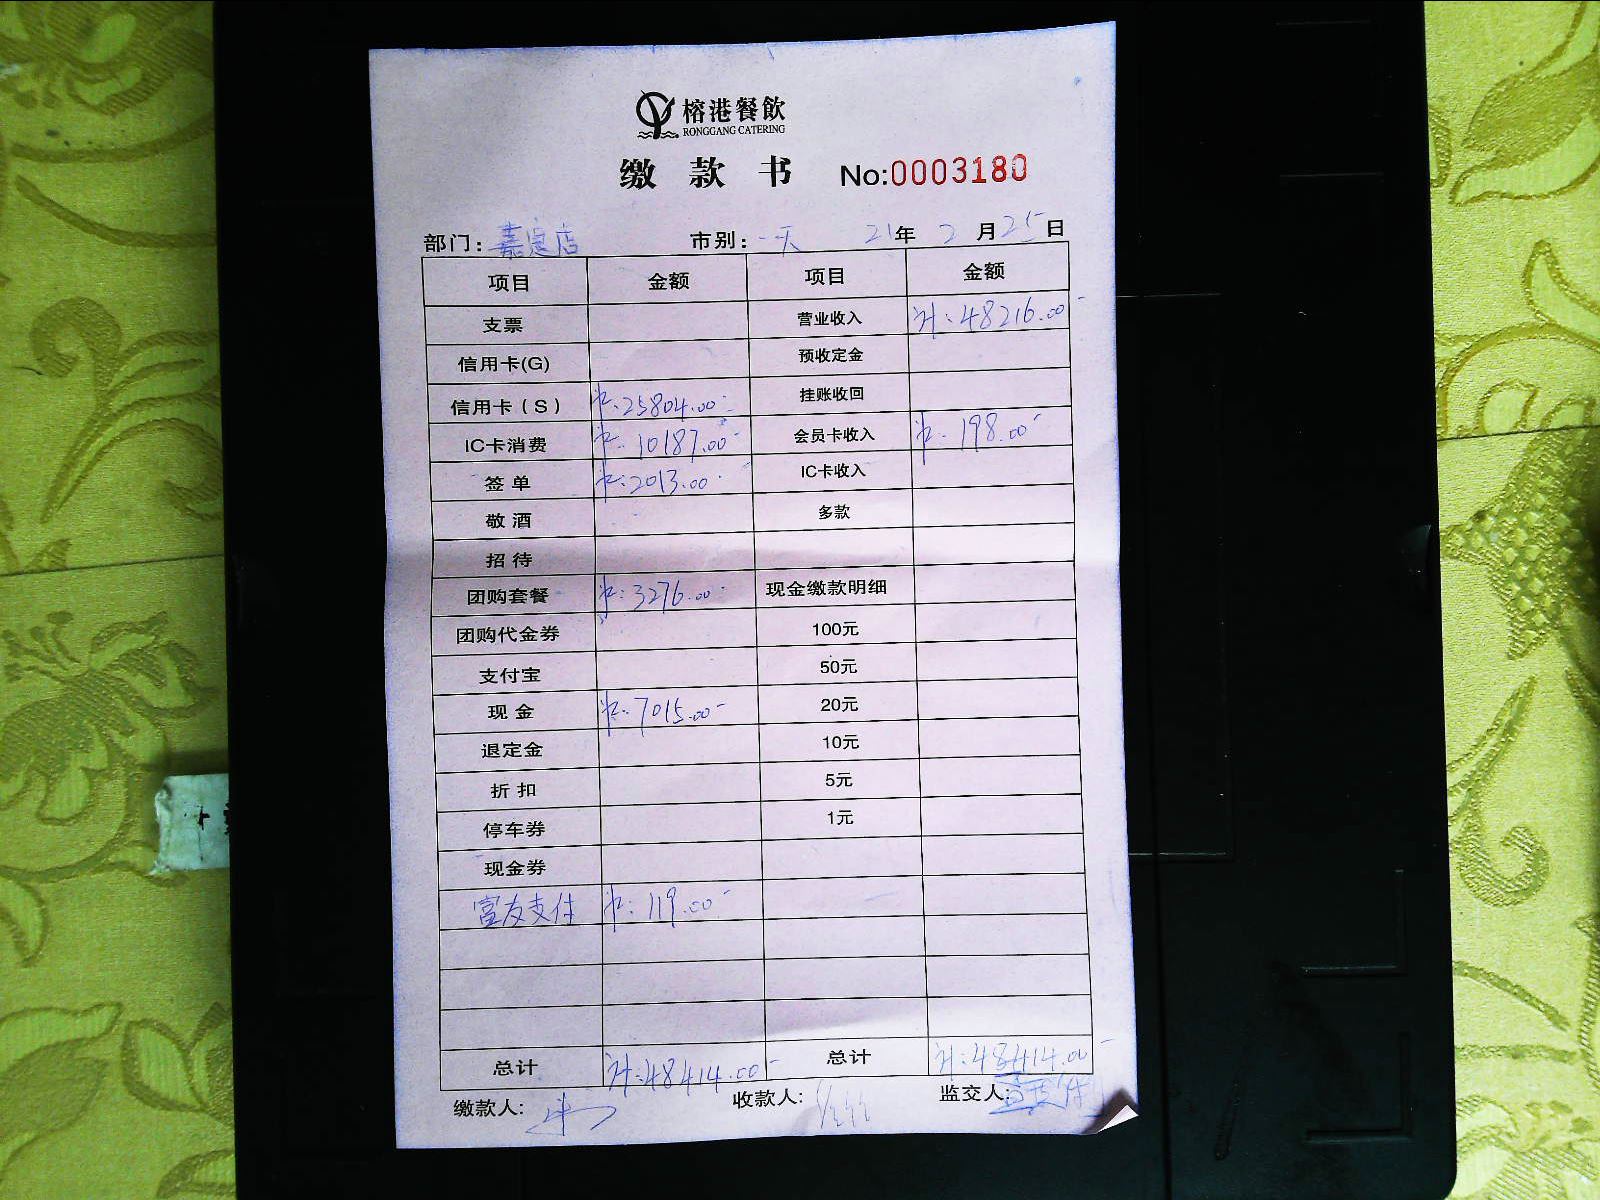 榕港餐飲
RONGGANG CATERING
缴款书 No:0003180
部门：嘉定店 市别：一天 21年2月25日
项目 金额 项目 金额
支票 营业收入 计:48216.00
信用卡(G) 预收定金
信用卡（S） 卡:25804.00 挂账收回
IC卡消费 卡:10187.00 会员卡收入 卡:198.00
签单 卡:2013.00 IC卡收入
敬酒 多款
招待
团购套餐 卡:3276.00 现金缴款明细
团购代金券 100元
支付宝 50元
现金 卡:7015.00 20元
退定金 10元
折扣 5元
停车券 1元
现金券
富友支付 卡:119.00
总计 计:48414.00 总计 计:48414.00
缴款人: 收款人: 监交人: